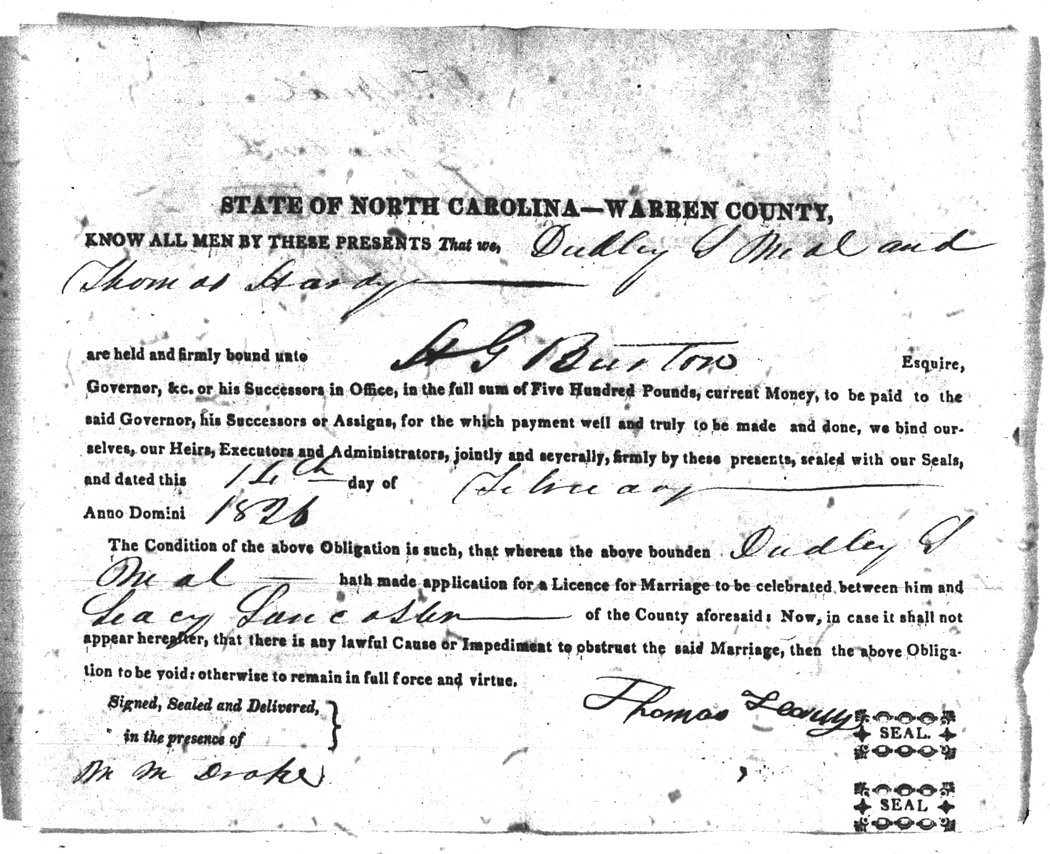 STATE OF NORTH CAROLINA—WARREN COUNTY,
KNOW ALL MEN BY THESE PRESENTS That we, Dudley S Neal and
Thomas Hardy
are held and firmly bound unto H G Burton Esquire,
Governor, &c. or his Successors in Office, in the full sum of Five Hundred Pounds, current Money, to be paid to the
said Governor, his Successors or Assigns, for the which payment well and truly to be made and done, we bind our-
selves, our Heirs, Executors and Administrators, jointly and severally, firmly by these presents, sealed with our Seals,
and dated this 14th day of February
Anno Domini 1826
The Condition of the above Obligation is such, that whereas the above bounden Dudley S
Neal hath made application for a Licence for Marriage to be celebrated between him and
Lancaster of the County aforesaid: Now, in case it shall not
appear hereafter, that there is any lawful Cause or Impediment to obstruct the said Marriage, then the above Obliga-
tion to be void: otherwise to remain in full force and virtue.
Signed, Sealed and Delivered,
in the presence of
Thomas
SEAL.
M M Drake
SEAL